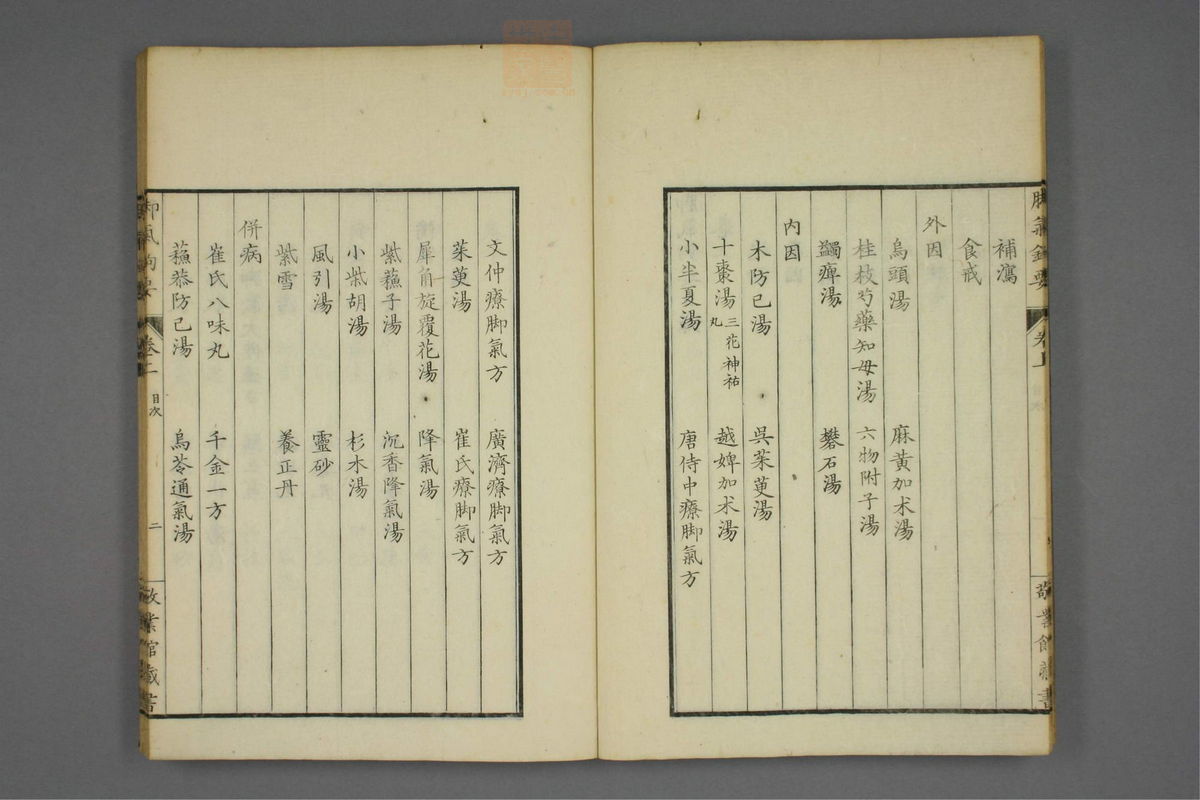 補瀉
食戒
外因
烏頭湯　麻黃加朮湯
桂枝芍藥知母湯　六物附子湯
蠲痺湯　礬石湯
內因
木防已湯　吳茱萸湯
十棗湯 三花神祐丸　越婢加朮湯
小半夏湯　唐侍中療脚氣方
文仲療脚氣方　廣濟療脚氣方
茱萸湯　崔氏療脚氣方
犀角旋覆花湯　降氣湯
紫蘓子湯　沉香降氣湯
小柴胡湯　杉木湯
風引湯　靈砂
紫雪　養正丹
併病
崔氏八味丸　千金一方
蘓恭防已湯　烏苓通氣湯
脚氣鉤要　卷上　目次　二　敬業館藏書